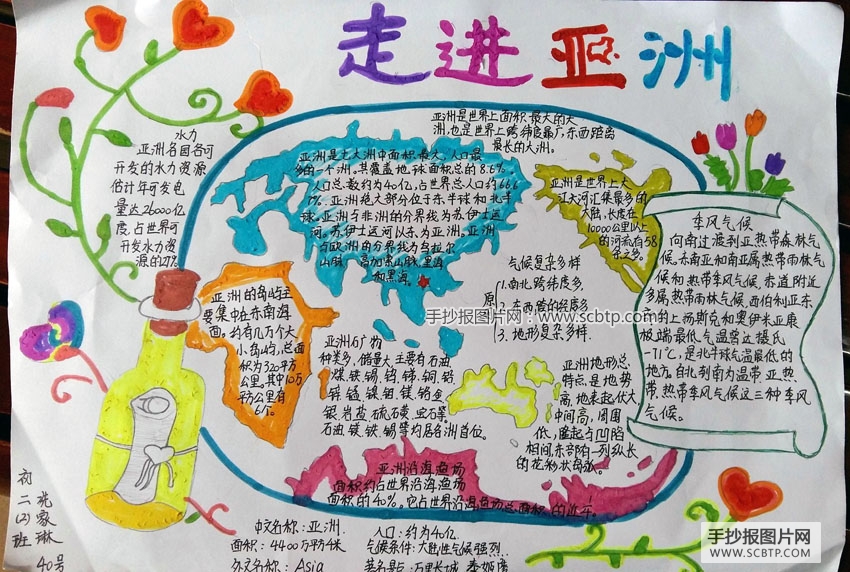 走进亚洲
水力
亚洲各国各可
开发的水力资源
估计年可发电
量达26000亿
度,占世界可
开发水力资
源的27%
亚洲是世界上面积最大的大
洲,也是世界上跨纬度最广,东西距离
最长的大洲。
亚洲是七大洲中面积最大,人口最
多的一个洲。其覆盖地球面积总的8.6%
人口总数约为40亿,占世界总人口约66.6
7%。亚洲绝大部分位于东半球和北半
球。亚洲与非洲的分界线为苏伊士运
河。苏伊士运河以东为亚洲。亚洲
与欧洲的分界线为乌拉尔
山脉 高加索山脉,里海
和黑海。
亚洲是世界上大
江大河汇集最多的
大陆,长度在
10000公里以上
的河流有58
条之多。
季风气候
向南过渡到亚热带森林气
候。东南亚和南亚属热带雨林气
候和热带季风气候。赤道附近
多属热带雨林气候。西伯利亚东
部的上扬斯克和奥伊米亚康
极端最低气温曾达摄氏
-71℃,是北半球气温最低的
地方。自北到南为温带、亚热
带、热带季风气候这三种季风
气候。
气候复杂多样
原
1.南北跨纬度多
2.东西跨的经度多
3.地形复杂多样.
手抄报图片网:www.scbtp.com
亚洲的岛屿主
要集中在东南海
面。约有几万个大
小岛屿,总面
积为320平方
公里。其中10万
平方公里有
6个。
亚洲矿物
种类多,储量大,主要有石油
煤、铁、锡、钨、锑、铜、铅
锌、锰、镍、钼、镁、铬、金
银、岩盐、硫、石墨、宝石等
石油、镁、铁、锡等均居各洲首位。
亚洲地形总
特点,是地势
高,地表起伏大
中间高,周围
低,隆起与凹陷
相间,东部有一列纵长
的花彩状岛弧。
亚洲沿海渔场
面积约占世界沿海渔场
面积的40%。
初二(2)班
张家琳
40号
中文名称:亚洲.
面积:4400万平方千米
外文名称:Asia
人口:约为40亿
气候条件:大陆性气候强烈.
著名景点:万里长城
手抄报图片网
WWW.SCBTP.COM